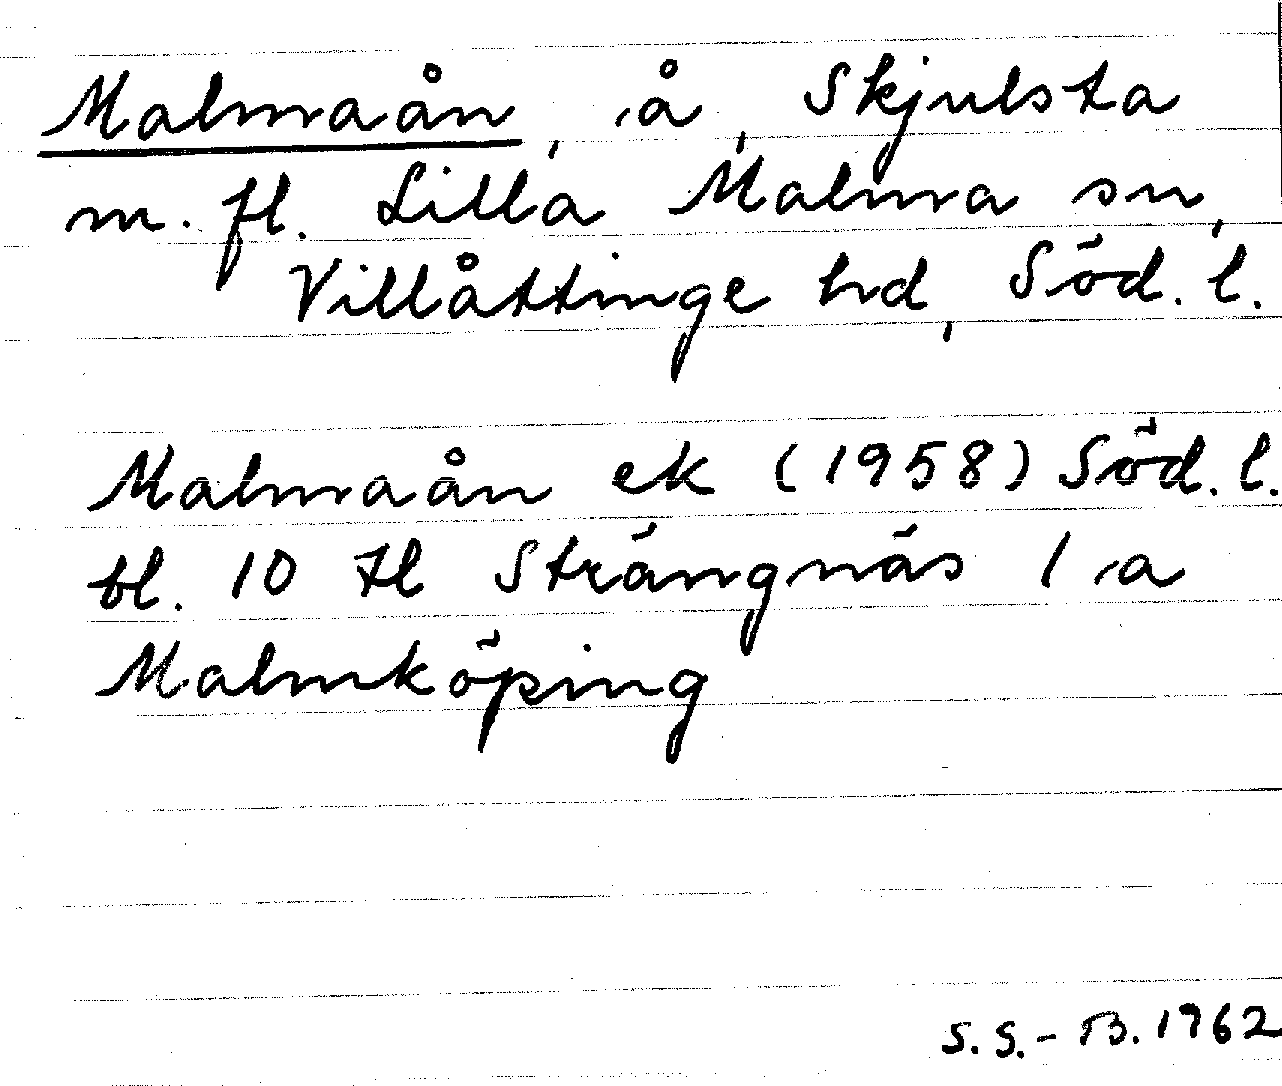 Malmaån, å, Skjulsta
m. fl. Lilla Malma sn,
Villåttinge hd, Söd. l.
Malmaån ek (1958) Söd. l.
bl. 10 H Strängnäs 1 a
Malmköping
S. S. - B. 1962